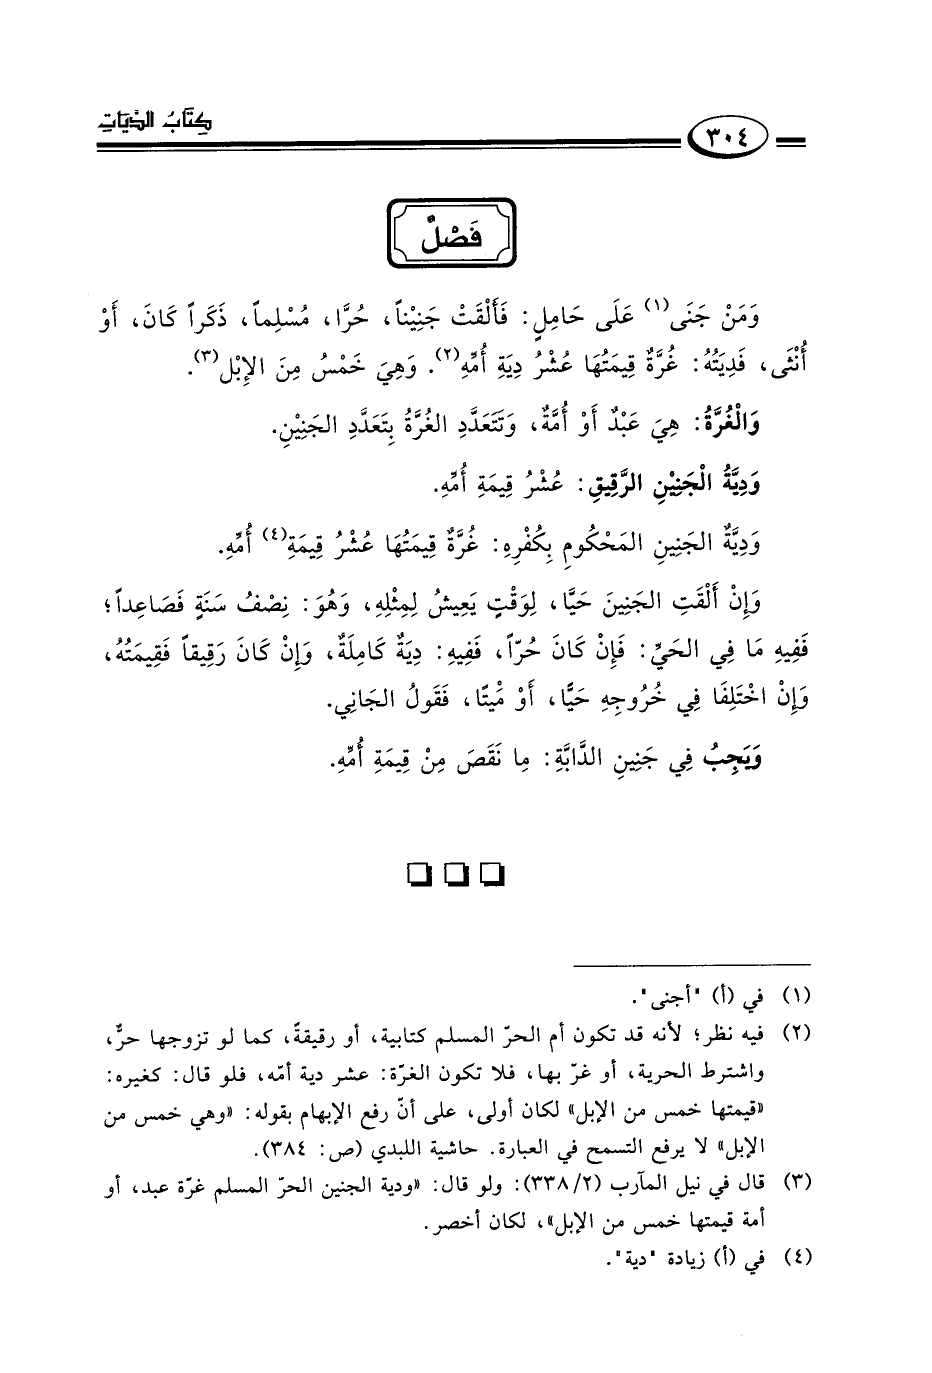 كِتَابُ الدِّيَاتِ
٣٠٤
فَصْلٌ
وَمَنْ جَنَى(١) عَلَى حَامِلٍ: فَأَلْقَتْ جَنِيْناً، حُرَّا، مُسْلِماً، ذَكَراً كَانَ، أَوْ
أُنْثَى، فَدِيَتُهُ: غُرَّةٌ قِيمَتُهَا عُشْرُ دِيَةِ أُمِّهِ(٢). وَهِيَ خَمْسُ مِنَ الإِبْل(٣).
وَالْغُرَّةُ: هِيَ عَبْدٌ أَوْ أُمَّةٌ، وَتَتَعَدَّدِ الغُرَّةُ بِتَعَدَّدِ الجَنِيْنِ.
وَدِيَّةُ الْجَنِيْنِ الرَّقِيقِ: عُشْرُ قِيمَةِ أُمِّهِ.
وَدِيَّةٌ الجَنِينِ المَحْكُومِ بِكُفْرِهِ: غُرَّةٌ قِيمَتُهَا عُشْرُ قِيمَةِ(٤) أُمِّهِ.
وَإِنْ أَلْقَتِ الجَنِينَ حَيَّا، لِوَقْتٍ يَعِيشُ لِمِثْلِهِ، وَهُوَ: نِصْفُ سَنَةٍ فَصَاعِداً؛
فَفِيهِ مَا فِي الحَيِّ: فَإِنْ كَانَ حُرّاً، فَفِيهِ: دِيَةٌ كَامِلَةٌ، وَإِنْ كَانَ رَقِيقاً فَقِيمَتُهُ،
وَإِنْ اخْتَلِفَا فِي خُرُوجِهِ حَيًّا، أَوْ مْيِتًا، فَقَولُ الجَانِي.
وَيَجِبُ فِي جَنِينِ الدَّابَّةِ: مِا نَقَصَ مِنْ قِيمَةِ أُمِّهِ.
(١) في (أ) "أجنى".
(٢) فيه نظر؛ لأنه قد تكون أم الحرّ المسلم كتابية، أو رقيقةً، كما لو تزوجها حرٌّ،
واشترط الحرية، أو غرّ بها، فلا تكون الغرّة: عشر دية أمّه، فلو قال: كغيره:
«قيمتها خمس من الإبل» لكان أولى، على أنّ رفع الإبهام بقوله: «وهي خمس من
الإبل» لا يرفع التسمح في العبارة. حاشية اللبدي (ص: ٣٨٤).
(٣) قال في نيل المآرب (٣٣٨/٢): ولو قال: «ودية الجنين الحرّ المسلم غرّة عبد، أو
أمة قيمتها خمس من الإبل»، لكان أخصر.
(٤) في (أ) زيادة "دية".